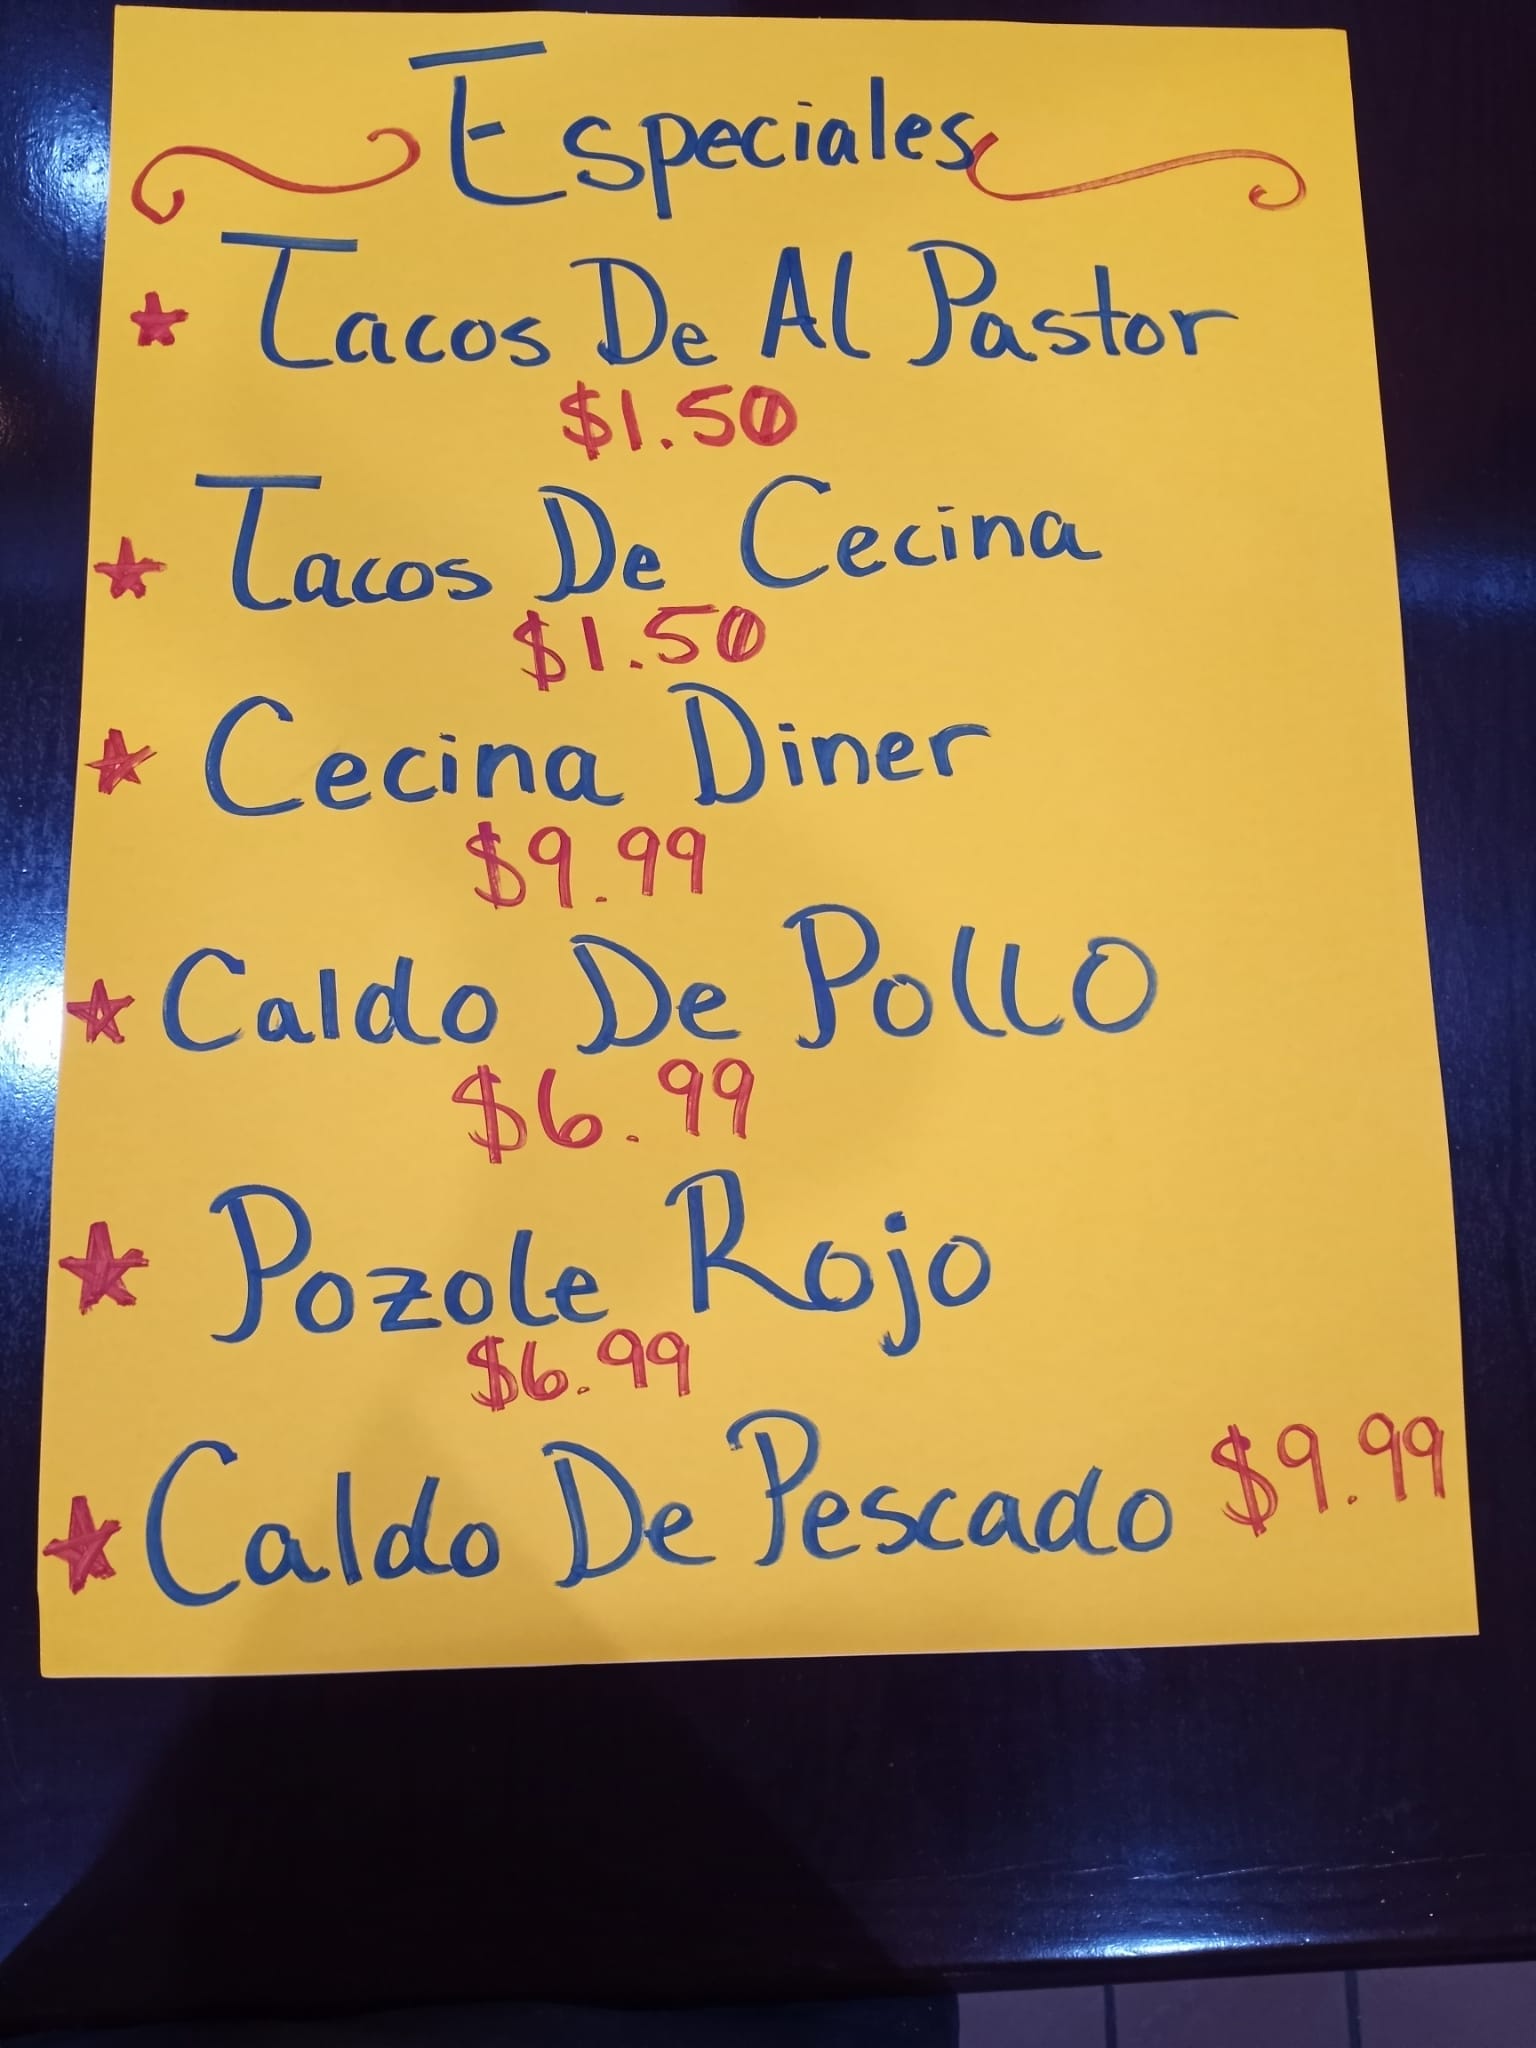 Especiales
Tacos De Al Pastor
$1.50
Tacos De Cecina
$1.50
Cecina Diner
$9.99
Caldo De Pollo
$6.99
Pozole Rojo
$6.99
Caldo De Pescado $9.99